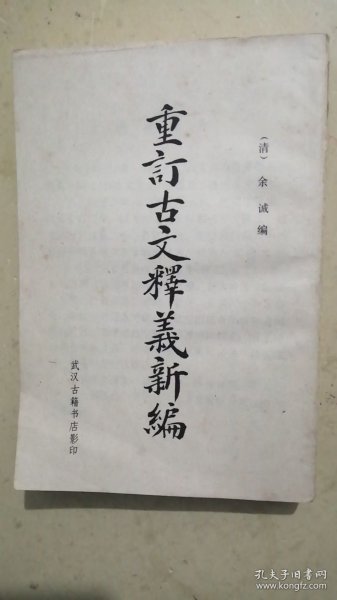 (清) 余诚编
重訂古文釋義新編
武汉古籍书店影印
孔夫子旧书网
www.kongfz.com